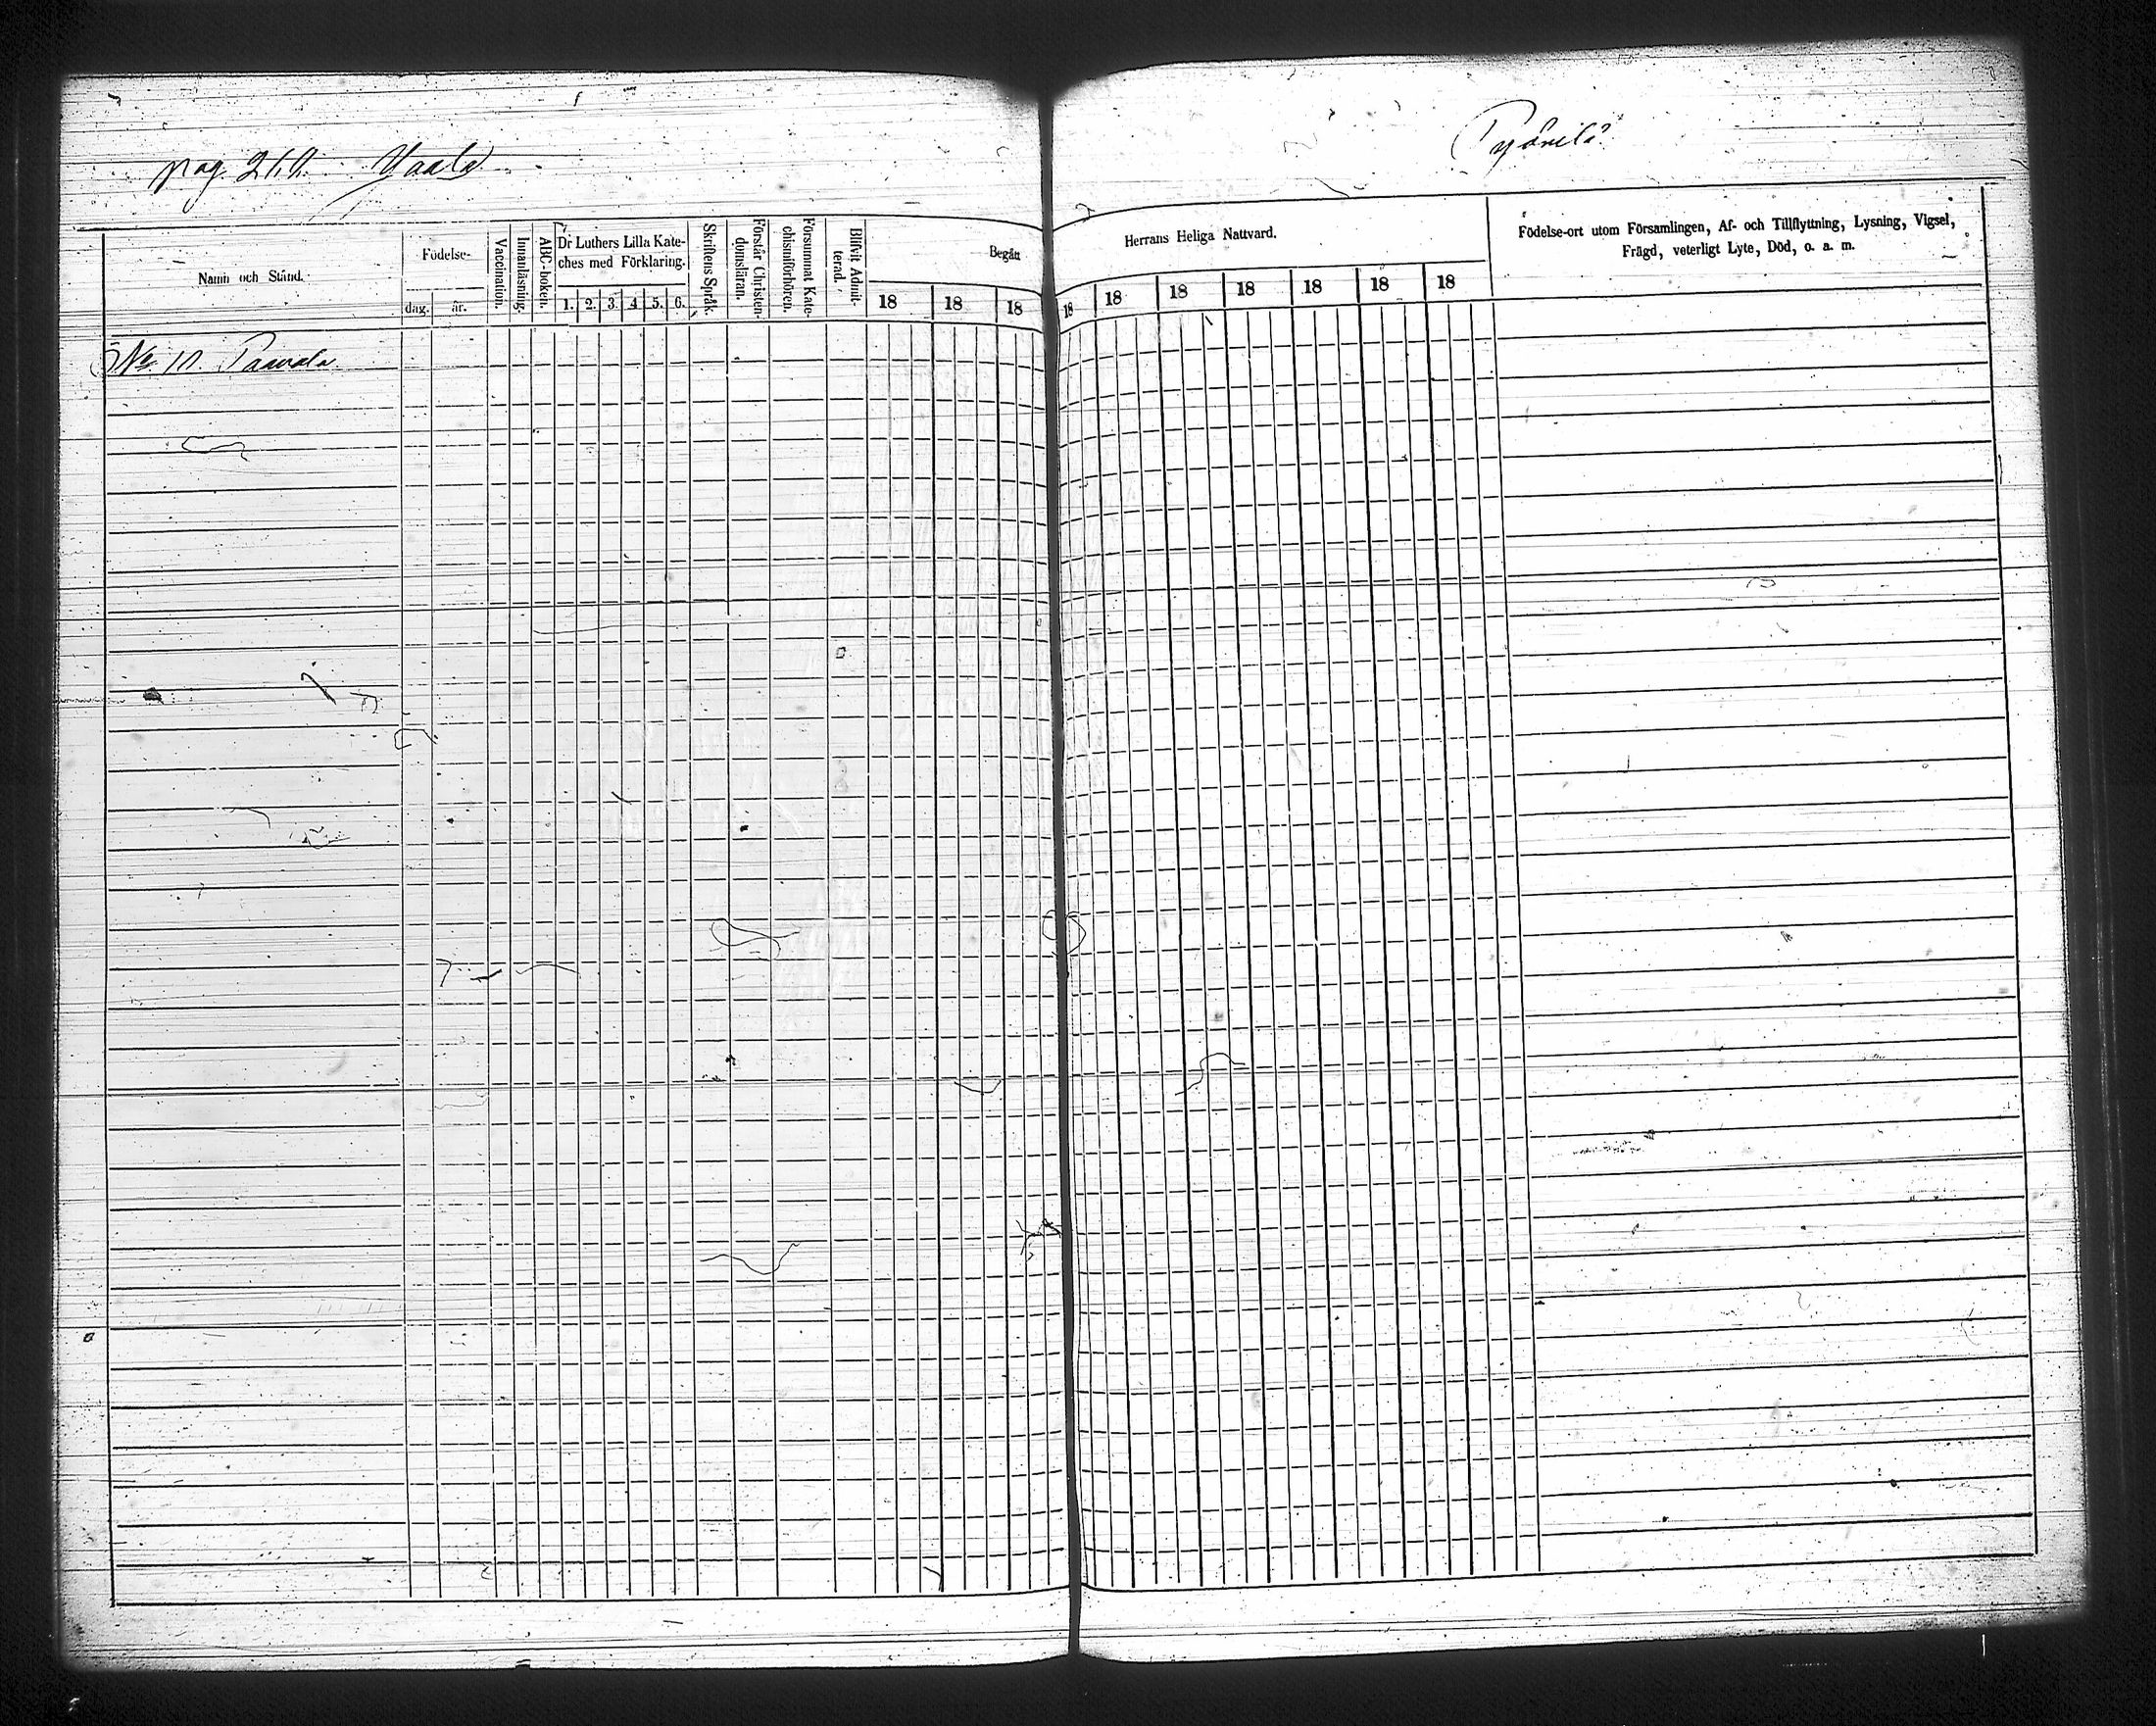 pag. 260. Yaala
Pyörilä
Namn och Stånd.
Födelse-
dag. år.
Vaccination.
Innanläsning.
ABC-boken.
Dr Luthers Lilla Kate-
ches med Förklaring.
1. 2. 3. 4. 5. 6.
Skriftens Språk.
Förstår Christen-
domsläran.
Försummat Kate-
chismiförhören.
Blifvit Admit-
terad.
Begått
18 18 18
Herrans Heliga Nattvard.
18 18 18 18 18 18 18
Födelse-ort utom Församlingen, Af- och Tillflyttning, Lysning, Vigsel,
Frägd, veterligt Lyte, Död, o. a. m.
No 10. Paavola